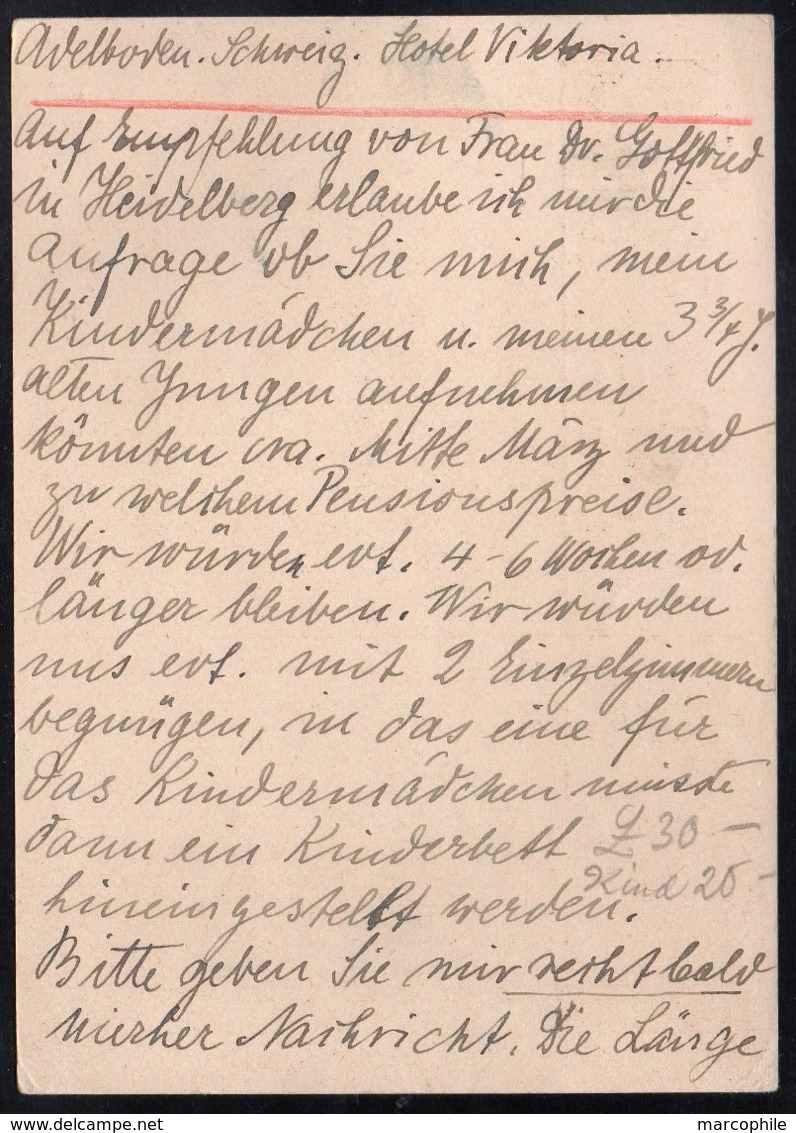 Adelboden. Schweiz. Hotel Viktoria.
Auf Empfehlung von Frau Dr. Gottfried
in Heidelberg erlaube ich mir die
Anfrage ob Sie mich, mein
Kindermädchen u. meinen 3 3/4 J.
alten Jungen aufnehmen
könnten cra. Mitte März und
zu welchem Pensionspreise.
Wir würden evt. 4-6 Wochen od.
länger bleiben. Wir würden
uns evt. mit 2 Einzelzimmern
begnügen, in das eine für
das Kindermädchen müsste
dann ein Kinderbett
30 –
Kind 20.–
hineingestellt werden.
Bitte geben Sie mir recht bald
hierher Nachricht. Die Länge
marcophile